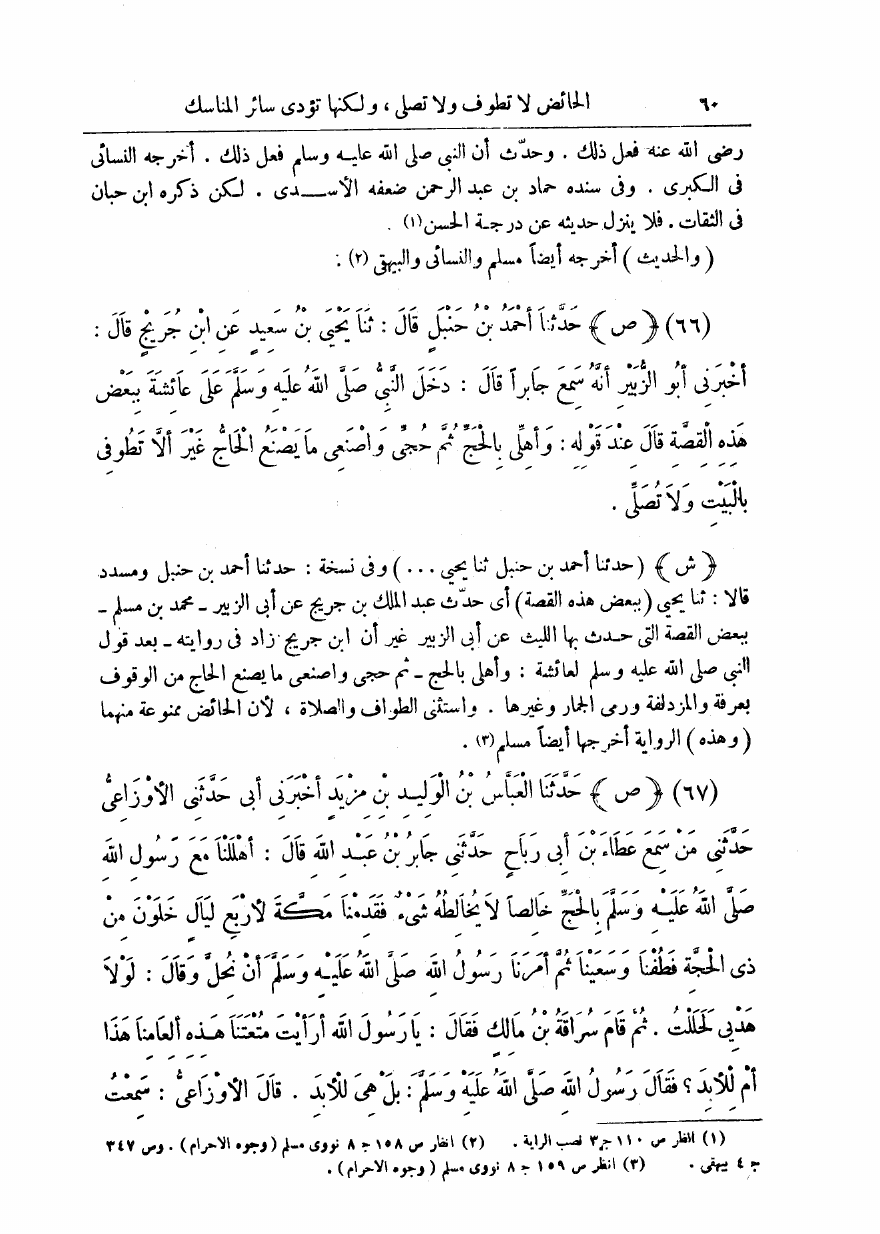 ٦٠ الحائض لا تطوف ولا تصلى ، ولكنها تؤدى سائر المناسك
رضى الله عنه فعل ذلك . وحدّث أن النبى صلى الله عليه وسلم فعل ذلك . أخرجه النسائى
فى الكبرى . وفى سنده حماد بن عبد الرحمن ضعفه الأســـدى . لكن ذكره ابن حبان
فى الثقات . فلا ينزل حديثه عن درجة الحسن (١) .
( والحديث ) أخرجه أيضاً مسلم والنسائى والبيهقى (٢) .
(٦٦) ﴿ ص ﴾ حَدَّثَنَا أَحْمَدُ بْنُ حَنْبَلٍ قَالَ : ثَنَا يَحْيَى بْنُ سَعِيدٍ عَنِ ابْنِ جُرَيْجٍ قَالَ :
أَخْبَرَنِى أَبُو الزُّبَيْرِ أَنَّهُ سَمِعَ جَابِراً قَالَ : دَخَلَ النَّبِىُّ صَلَّى اللهُ عَلَيْهِ وَسَلَّمَ عَلَى عَائِشَةَ بِبَعْضِ
هَذِهِ الْقِصَّةِ قَالَ عِنْدَ قَوْلِهِ : وَأَهِلِّى بِالْحَجِّ ثُمَّ حُجِّى وَاصْنَعِى مَا يَصْنَعُ الْحَاجُّ غَيْرَ أَلاَّ تَطُوفِى
بِالْبَيْتِ وَلاَ تُصَلِّى .
﴿ ش ﴾ (حدثنا أحمد بن حنبل ثنا يحيى ...) وفى نسخة : حدثنا أحمد بن حنبل ومسدد
قالا : ثنا يحيى (ببعض هذه القصة) أى حدّث عبد الملك بن جريج عن أبى الزبير ـ محمد بن مسلم ـ
ببعض القصة التى حدث بها الليث عن أبى الزبير غير أن ابن جريج زاد فى روايته ـ بعد قول
النبى صلى الله عليه وسلم لعائشة : وأهلى بالحج ـ ثم حجى واصنعى ما يصنع الحاج من الوقوف
بعرفة والمزدلفة ورمى الجمار وغيرها . واستثنى الطواف والصلاة ، لأن الحائض ممنوعة منهما
(وهذه) الرواية أخرجها أيضاً مسلم (٣) .
(٦٧) ﴿ ص ﴾ حَدَّثَنَا الْعَبَّاسُ بْنُ الْوَلِيدِ بْنِ مَزْيَدٍ أَخْبَرَنِى أَبِى حَدَّثَنِى الأَوْزَاعِىُّ
حَدَّثَنِى مَنْ سَمِعَ عَطَاءَ بْنَ أَبِى رَبَاحٍ حَدَّثَنِى جَابِرُ بْنُ عَبْدِ اللهِ قَالَ : أَهْلَلْنَا مَعَ رَسُولِ اللهِ
صَلَّى اللهُ عَلَيْهِ وَسَلَّمَ بِالْحَجِّ خَالِصاً لاَ يُخَالِطُهُ شَىْءٌ فَقَدِمْنَا مَكَّةَ لأَرْبَعِ لَيَالٍ خَلَوْنَ مِنْ
ذِى الْحِجَّةِ فَطُفْنَا وَسَعَيْنَا ثُمَّ أَمَرَنَا رَسُولُ اللهِ صَلَّى اللهُ عَلَيْهِ وَسَلَّمَ أَنْ نُحِلَّ وَقَالَ : لَوْلاَ
هَدْيِى لَحَلَلْتُ . ثُمَّ قَامَ سُرَاقَةُ بْنُ مَالِكٍ فَقَالَ : يَا رَسُولَ اللهِ أَرَأَيْتَ مُتْعَتَنَا هَذِهِ أَلِعَامِنَا هَذَا
أَمْ لِلأَبَدِ ؟ فَقَالَ رَسُولُ اللهِ صَلَّى اللهُ عَلَيْهِ وَسَلَّمَ : بَلْ هِىَ لِلأَبَدِ . قَالَ الأَوْزَاعِىُّ : سَمِعْتُ
(١) انظر ص ١١٠ جـ ٣ نصب الراية . (٢) انظر ص ١٥٨ جـ ٨ نووى مسلم ( وجوه الاحرام ) . وص ٣٤٧
جـ ٤ بيهقى . (٣) انظر ص ١٥٩ جـ ٨ نووى مسلم ( وجوه الاحرام ) .